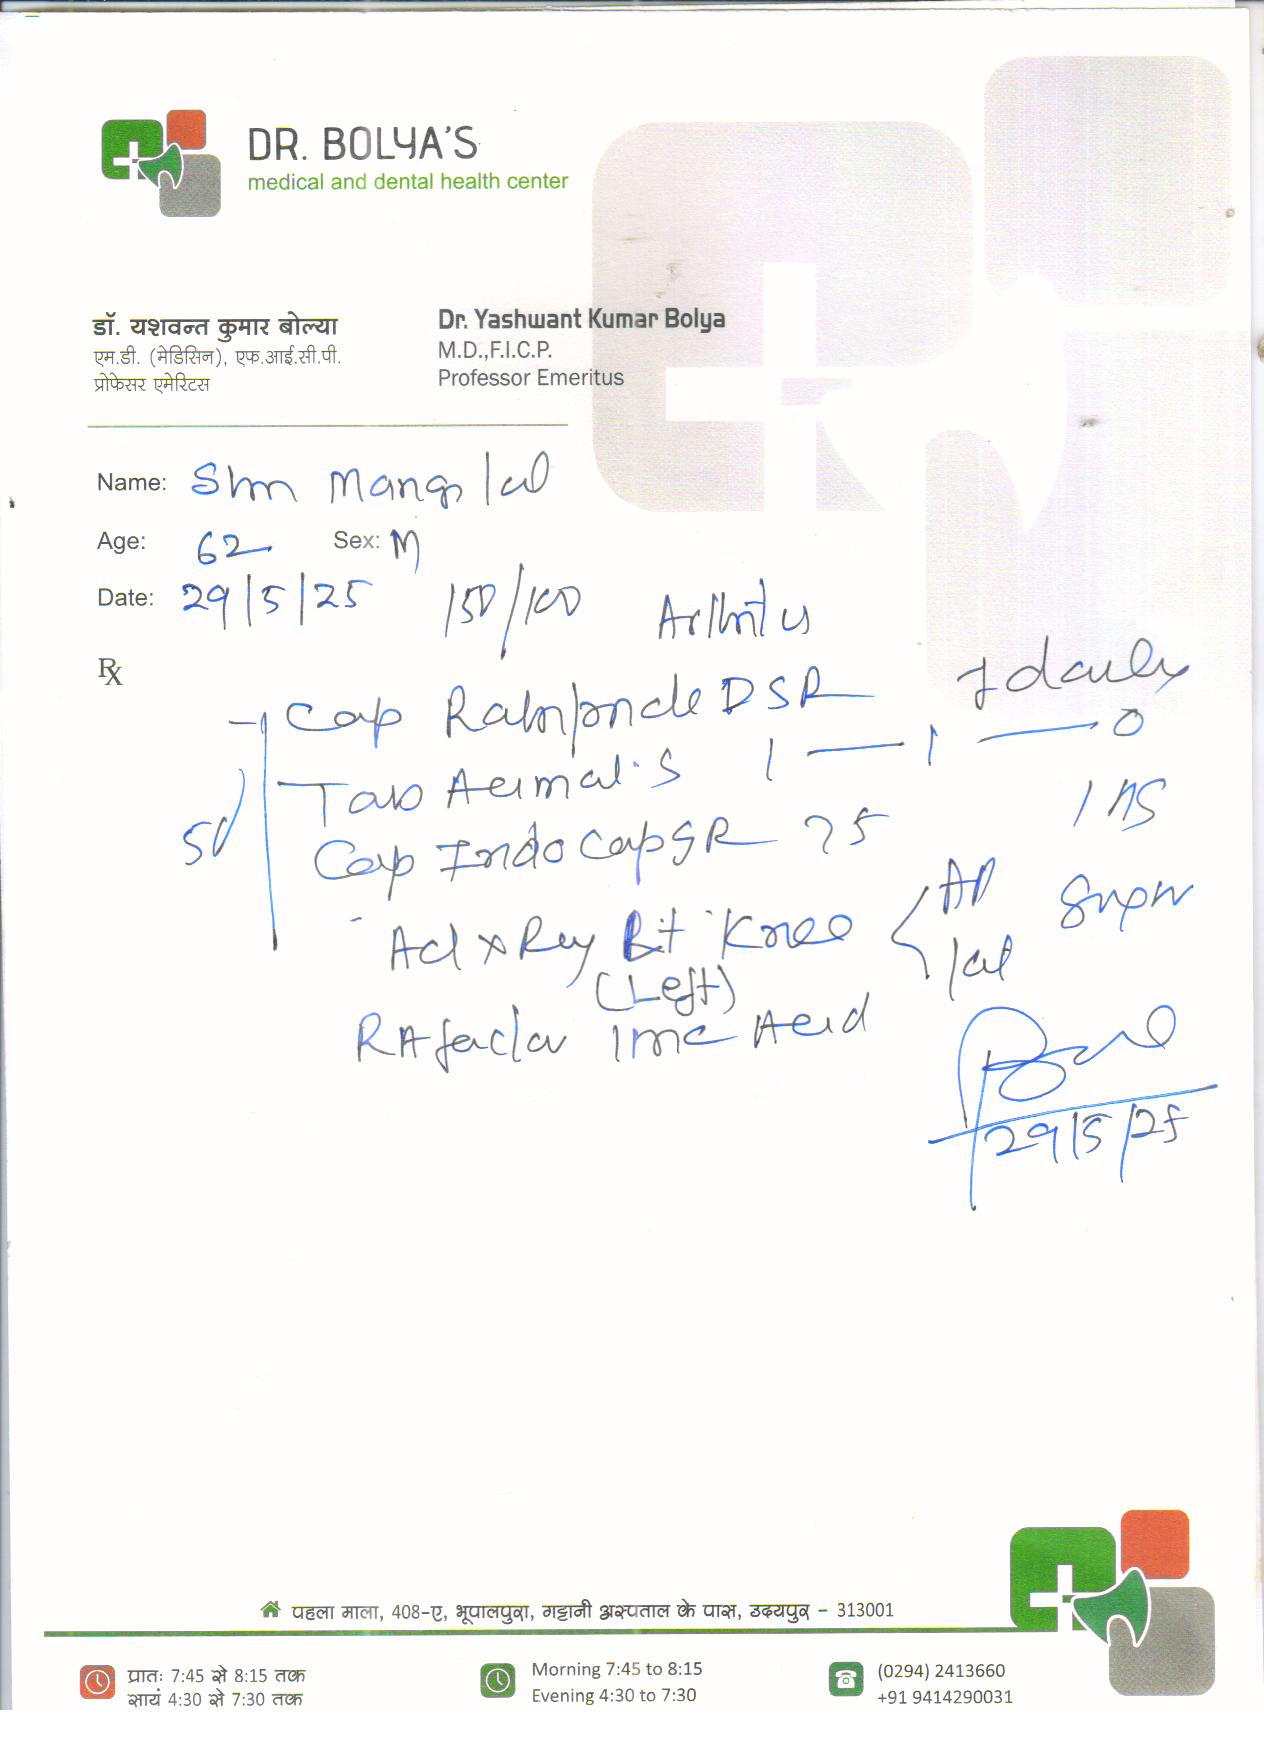 DR. BOLYA'S
medical and dental health center
डॉ. यशवन्त कुमार बोल्या
एम.डी. (मेडिसिन), एफ.आई.सी.पी.
प्रोफेसर एमेरिटस
Dr. Yashwant Kumar Bolya
M.D.,F.I.C.P.
Professor Emeritus
Name: Shri Mangi lal
Age: 62 Sex: M
Date: 29/5/25 150/100 Arthritis
Rx
Cap DSR 1 daily
Tab S 1 — 1 — 0
5d Cap Indocap SR 75 1 HS
Ad x Ray Knee < AP
(Left) lat
RA factor Acid
29/5/25
पहला माला, 408-ए, भूपालपुरा, गट्टानी अस्पताल के पास, उदयपुर - 313001
प्रातः 7:45 से 8:15 तक
सायं 4:30 से 7:30 तक
Morning 7:45 to 8:15
Evening 4:30 to 7:30
(0294) 2413660
+91 9414290031